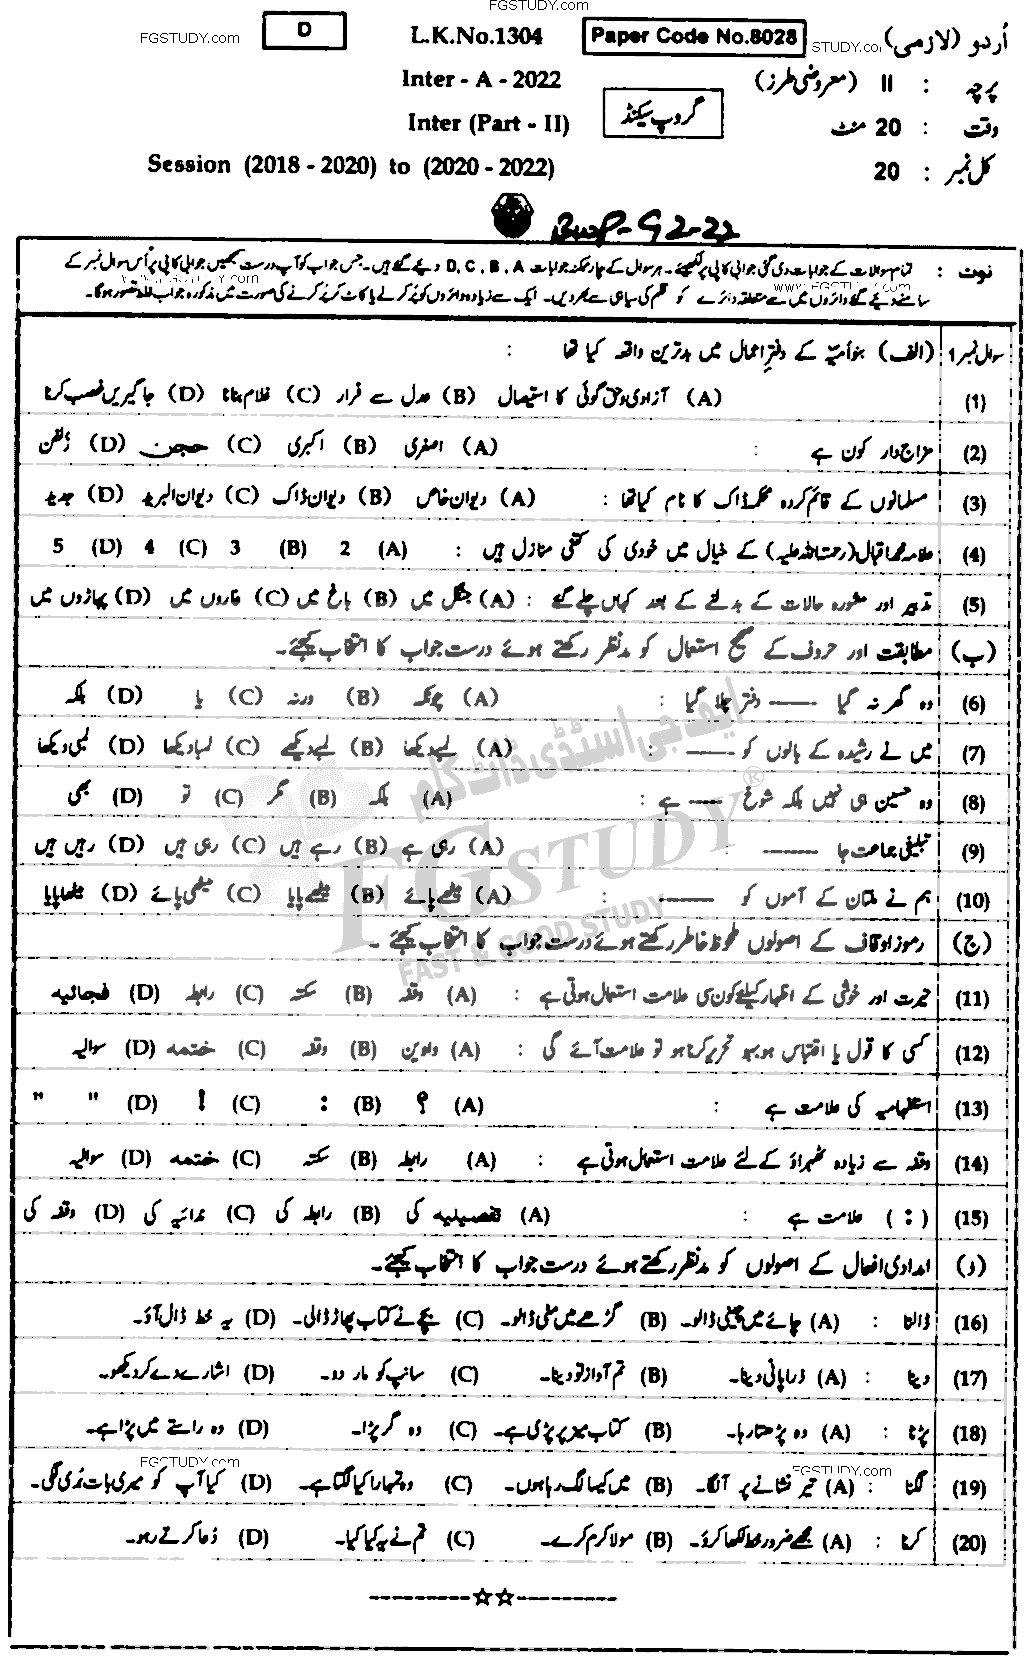 FGSTUDY.com
FGSTUDY.com
D L.K.No.1304 Paper Code No.8028 STUDY.com اُردو (لازمی)
Inter - A - 2022 پرچہ : II (معروضی طرز)
Inter (Part - II) گروپ سیکنڈ وقت : 20 منٹ
Session (2018 - 2020) to (2020 - 2022) کل نمبر : 20
BWP-G2-22
نوٹ : تمام سوالات کے جوابات دی گئی جوابی کاپی پر لکھیئے۔ ہر سوال کے چار ممکنہ جوابات D, C, B, A دیئے گئے ہیں۔ جس جواب کو آپ درست سمجھیں جوابی کاپی پر اُس سوال نمبر کے
سامنے دیئے گئے دائروں میں سے متعلقہ دائرے کو قلم کی سیاہی سے بھر دیں۔ ایک سے زیادہ دائروں کو پُر کرنے یا کاٹ کر پُر کرنے کی صورت میں مذکورہ جواب غلط تصور ہوگا۔
www.FGSTUDY.com
سوال نمبر 1 (الف) بنو اُمیّہ کے دفترِ اعمال میں بدترین واقعہ کیا تھا :
(1) (A) آزادی و حق گوئی کا استیصال (B) عدل سے فرار (C) غلام بنانا (D) جاگیریں غصب کرنا
(2) مزاج دار کون ہے : (A) اصغری (B) اکبری (C) حجن (D) زلفن
(3) مسلمانوں کے قائم کردہ محکمہ ڈاک کا نام کیا تھا : (A) دیوان خاص (B) دیوان ڈاک (C) دیوان البرید (D) جدید
(4) علامہ محمد اقبال (رحمتہ اللہ علیہ) کے خیال میں خودی کی کتنی منازل ہیں : (A) 2 (B) 3 (C) 4 (D) 5
(5) تدبیر اور مشورہ حالات کے بدلنے کے بعد کہاں چلے گئے : (A) جنگل میں (B) باغ میں (C) غاروں میں (D) پہاڑوں میں
(ب) مطابقت اور حروف کے صحیح استعمال کو مدنظر رکھتے ہوئے درست جواب کا انتخاب کیجئے۔
(6) وہ گھر نہ گیا ـــــ دفتر چلا گیا : (A) چونکہ (B) ورنہ (C) یا (D) بلکہ
(7) میں نے رشیدہ کے بالوں کو ـــــ : (A) لمبے دیکھا (B) لمبے دیکھے (C) لمبا دیکھا (D) لمبی دیکھا
(8) وہ حسین ہی نہیں بلکہ شوخ ـــــ ہے : (A) بلکہ (B) مگر (C) تو (D) بھی
(9) تبلیغی جماعت جا ـــــ : (A) رہی ہے (B) رہے ہیں (C) رہی ہیں (D) رہیں ہیں
(10) ہم نے ملتان کے آموں کو ـــــ : (A) میٹھے پائے (B) میٹھے پایا (C) میٹھی پائے (D) میٹھا پایا
(ج) رموز اوقاف کے اصولوں ملحوظ خاطر رکھتے ہوئے درست جواب کا انتخاب کیجئے۔
(11) حیرت اور خوشی کے اظہار کیلئے کون سی علامت استعمال ہوتی ہے : (A) وقفہ (B) سکتہ (C) رابطہ (D) فجائیہ
(12) کسی کا قول یا اقتباس ہو بہو تحریر کرنا ہو تو علامت آئے گی : (A) واوین (B) وقفہ (C) ختمہ (D) سوالیہ
(13) استفہامیہ کی علامت ہے : (A) ؟ (B) : (C) ! (D) " "
(14) وقفہ سے زیادہ ٹھہراؤ کے لئے علامت استعمال ہوتی ہے : (A) رابطہ (B) سکتہ (C) ختمہ (D) سوالیہ
(15) ( : ) علامت ہے : (A) تفصیلیہ کی (B) رابطہ کی (C) ندائیہ کی (D) وقفہ کی
(د) امدادی افعال کے اصولوں کو مدنظر رکھتے ہوئے درست جواب کا انتخاب کیجئے۔
(16) ڈالنا : (A) چائے میں چینی ڈالو۔ (B) گڑھے میں مٹی ڈالو۔ (C) بچے نے کتاب پھاڑ ڈالی۔ (D) یہ خط ڈال آؤ۔
(17) دینا : (A) ذرا پانی دینا۔ (B) تم آواز تو دینا۔ (C) سانپ کو مار دو۔ (D) اشارے دے کر دیکھو۔
(18) پڑنا : (A) وہ پڑھتا رہا۔ (B) کتاب میز پر پڑی ہے۔ (C) وہ گر پڑا۔ (D) وہ راستے میں پڑا ہے۔
FGSTUDY.com FGSTUDY.com
(19) لگنا : (A) تیر نشانے پر آ لگا۔ (B) میں کیسا لگ رہا ہوں۔ (C) وہ تمہارا کیا لگتا ہے۔ (D) کیا آپ کو میری بات بُری لگی۔
(20) کرنا : (A) مجھے ضرور خط لکھا کرو۔ (B) مولا کرم کرے۔ (C) تم نے یہ کیا کیا۔ (D) دُعا کرتے رہو۔
ایف جی اسٹڈی ڈاٹ کام
FGSTUDY ®
FAST & GOOD STUDY